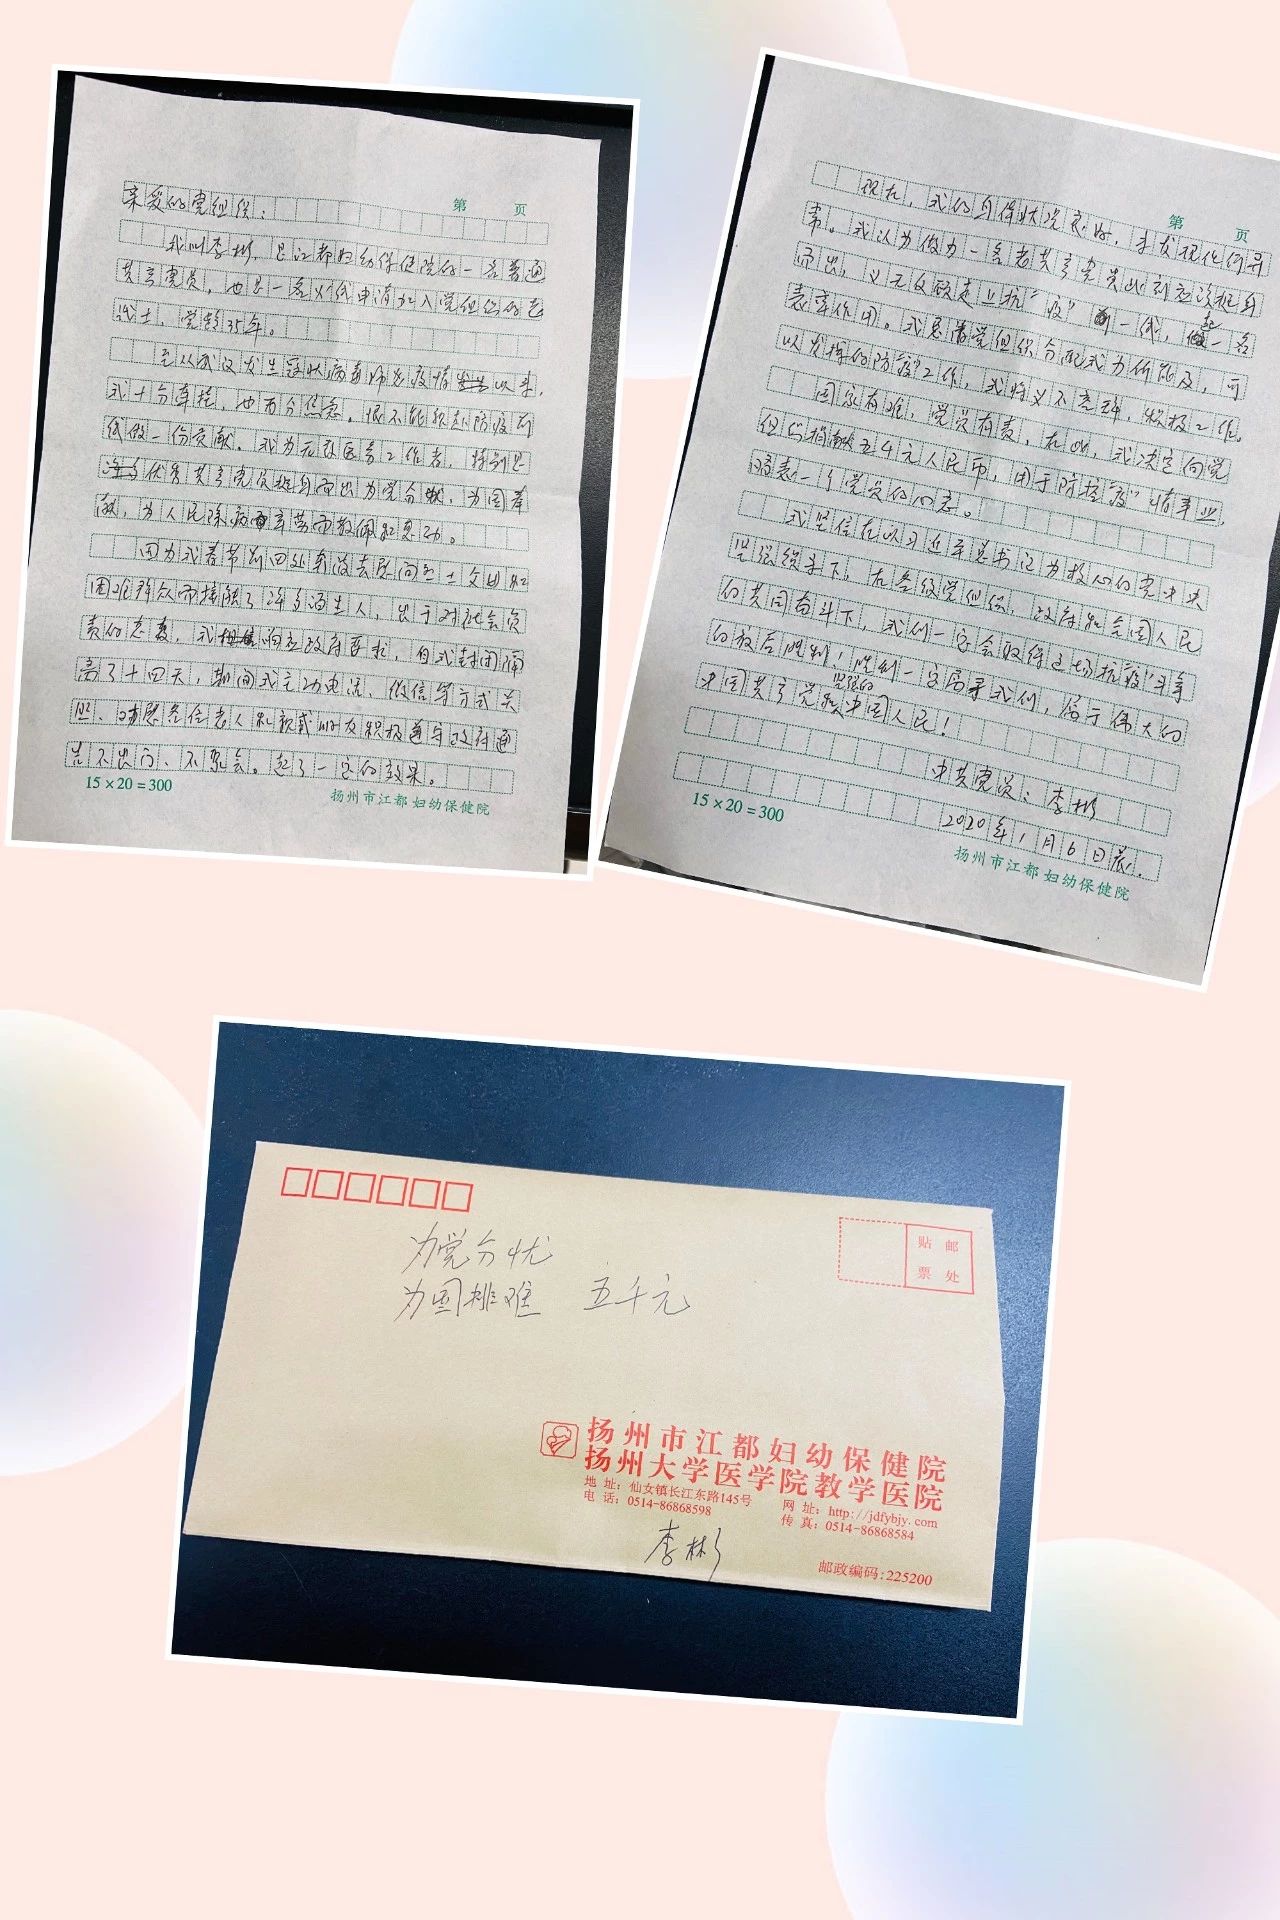 第 页
亲爱的党组织：
我叫李彬，是江都妇幼保健院的一名普通
共产党员，也是一名火线申请加入党组织的老
战士，党龄35年。
自从武汉发生冠状病毒肺炎疫情以来，
我十分牵挂，也万分焦急。恨不能就赴防疫前
线做一份贡献。我为无数医务工作者，特别是
优秀共产党员挺身而出为党分忧，为国奉
献，为人民除病辛劳而敬佩和感动。
因为我春节前回处事没去慰问烈士父母和
困难群众而接触了许多陌生人，出于对社会负
责的态度，我响应政府要求，自我封闭隔
离了十四天，期间我主动电话、微信等方式关
照、动员各位老人和亲戚朋友积极遵守政府通
告不出门、不聚会。起了一定的效果。
15×20=300
扬州市江都妇幼保健院
第 页
现在，我的身体状况良好，未发现任何异
常。我认为做为一名老共产党员此刻应该挺身
而出，义无反顾走上抗“疫”前一线，起一名
表率作用。我恳请党组织分配我力所能及，可
以发挥的防疫工作，我将义不容辞，积极工作。
国家有难，党员有责，在此，我决定向党
组织捐献五千元人民币，用于防控“疫”情事业，
略表一个党员的心意。
我坚信在以习近平总书记为核心的党中央
坚强领导下，在各级党组织，政府和全国人民
的共同奋斗下，我们一定会取得这场抗“疫”斗争
的最后胜利！胜利一定属于我们，属于伟大的
坚强的
中国共产党和中国人民！
中共党员：李彬
2020年1月6日晨.
15×20=300
扬州市江都妇幼保健院
为党分忧
为国排难 五千元
贴 邮
票 处
扬州市江都妇幼保健院
扬州大学医学院教学医院
地 址：仙女镇长江东路145号 网 址：http://jdfybjy.com
电 话：0514-86868598 传 真：0514-86868584
李彬
邮政编码：225200